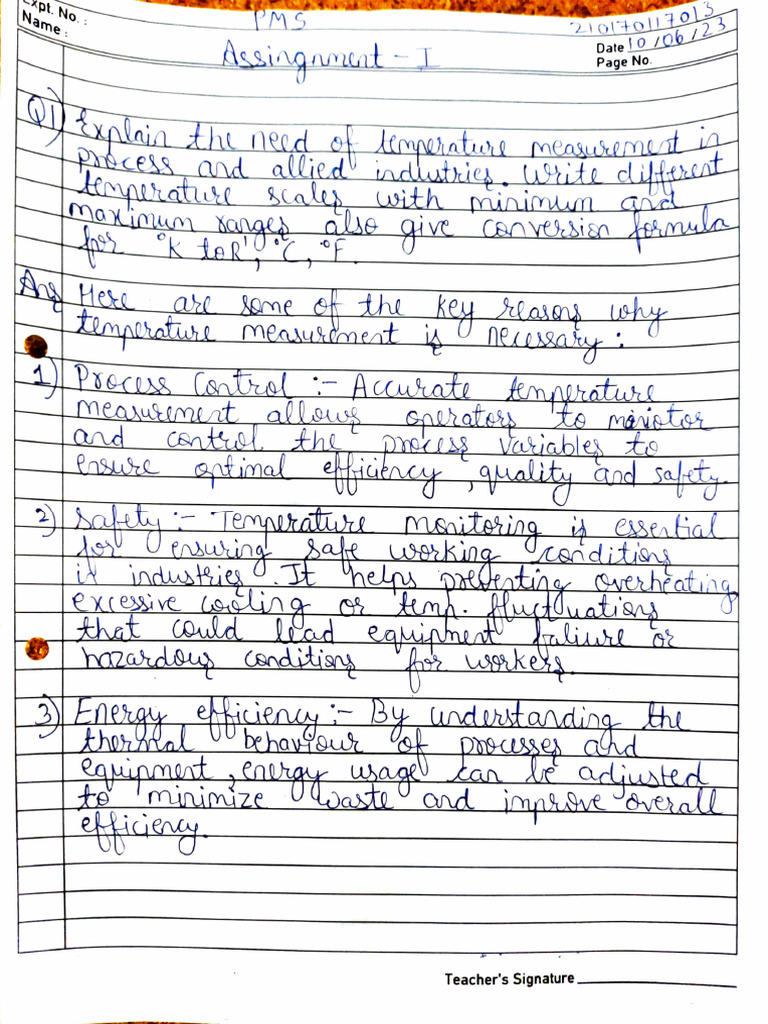 Expt. No. :
Name :
PMS
210170117013
Date 10/06/23
Page No.
Assingnment - I
Q1) Explain the need of temperature measurement in
process and allied industries. Write different
temperature scales with minimum and
maximum ranges also give conversion formula
for °K to R', °C, °F.
Ans Here are some of the key reasons why
temperature measurement is necessary :
1) Process Control :- Accurate temperature
measurement allows operators to
and control the process variables to
ensure optimal efficiency, quality and safety.
2) Safety :- Temperature monitoring is essential
for ensuring safe working conditions
in industries. It helps preventing overheating,
excessive cooling or temp. fluctuations
that could lead equipment faliure or
hazardous conditions for workers.
3) Energy efficiency :- By understanding the
thermal behaviour of processes and
equipment, energy usage can be adjusted
to minimize waste and improve overall
efficiency.
Teacher's Signature